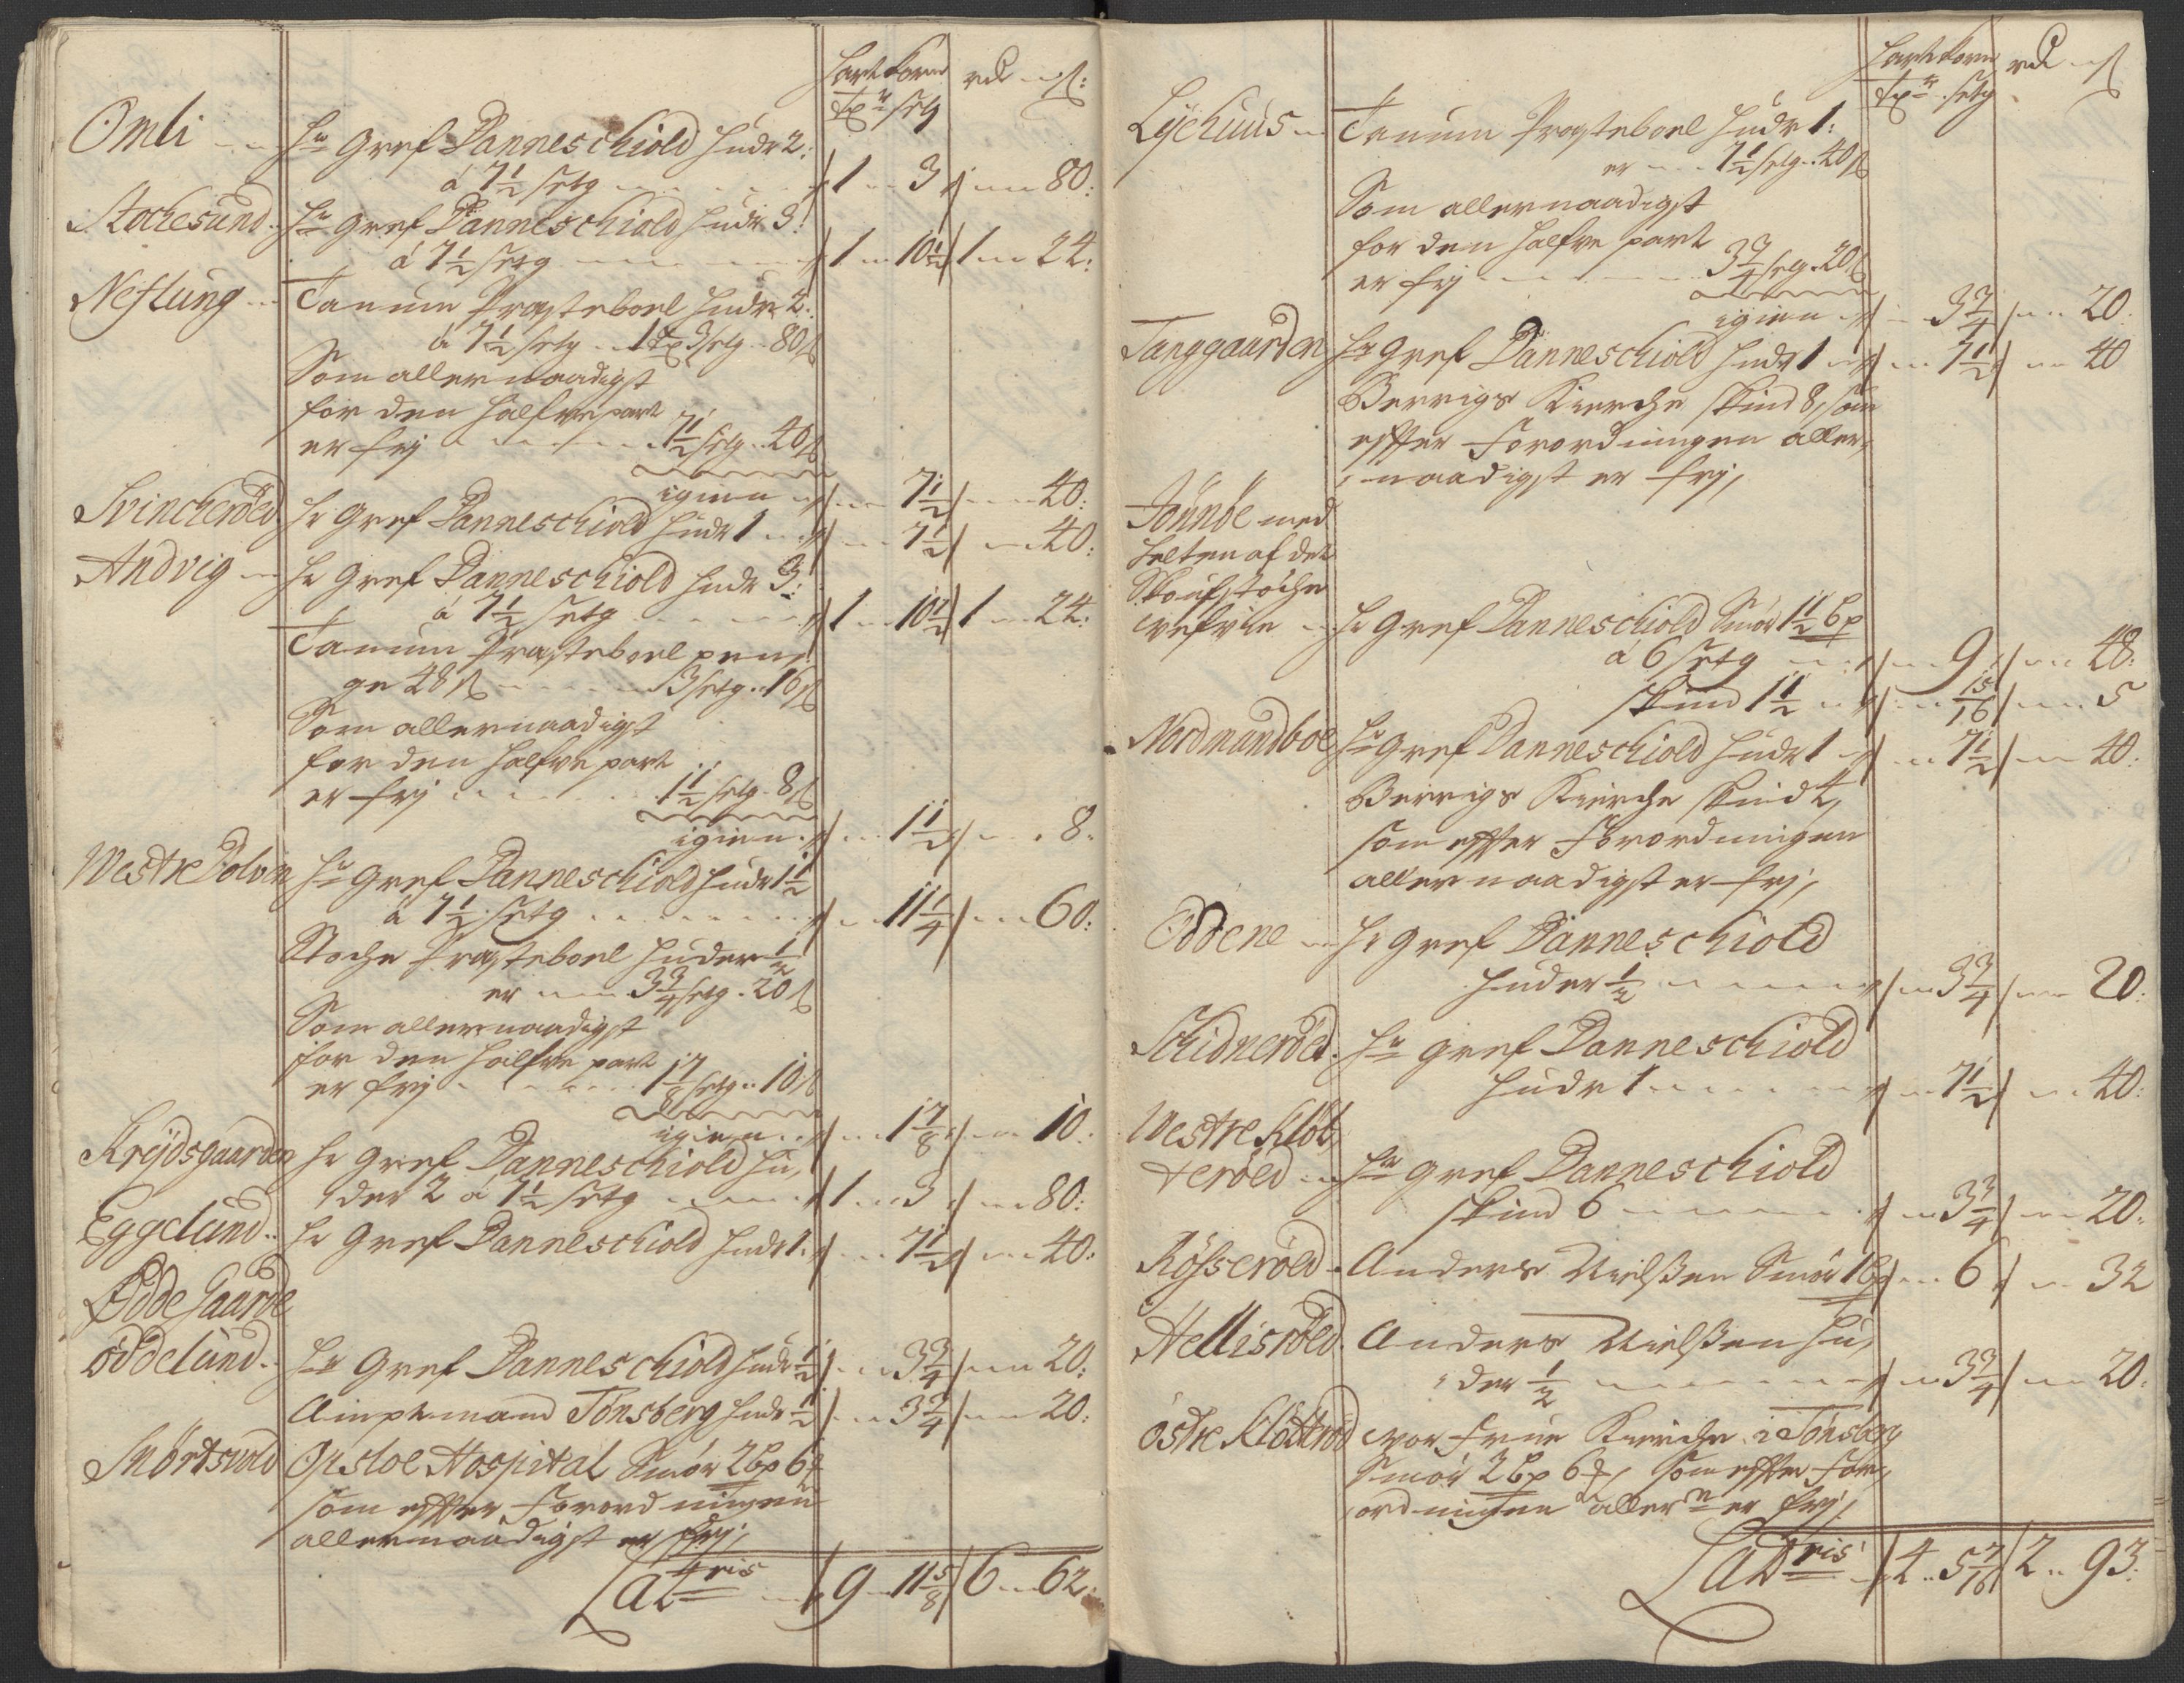 Hartkorn rdl ß:
Tdr setg
Omli Hr Gref Danneschiold Huder 2:
á 7½ setg 1 3 80:
Stochesund Hr Gref Danneschiold Huder 3:
á 7½ setg 1 10½ 1 24:
Neflung Tanum Præsteboel Huder 2:
á 7½ setg 1 Td 3 setg 80 ß
Som allernaadigst
for den halfve part
er frj 7½ setg 40 ß
igien 7½ 40:
Svincheröed Hr Gref Danneschiold Hudr 1 7½ 40:
Andvig Hr Gref Danneschiold Hudr 3:
á 7½ setg 1 10½ 1 24:
Tanum Præsteboel pen,
ge 48 ß 3 setg 16 ß
Som allernaadigst
for den halfve part
er frj 1½ setg 8 ß
igien 1½ 8:
Westre Dolven Hr Gref Danneschiold Hudr 1½
á 7½ setg 11¼ 60:
Stoche Præsteboel Huder ½
er 3¾ setg 20 ß
Som allernaadigst
for den halfve part
er frj 1⅞ setg 10 ß
igien 1⅞ 10:
Krÿdsgaarden Hr Gref Danneschiold Hu,
der 2 á 7½ setg 1 3 80:
Eggelund Hr Gref Danneschiold Hudr 1 7½ 40:
Ødde Gaarde
öddelund Hr Gref Danneschiold Hudr ½ 3¾ 20:
Amptmand Tönsberg Hudr ½ 3¾ 20:
Smörtsvold Opsloe Hospital Smör 2 Bp 6
som effter Forordningen
allernaadigst er frj,
Latris 9 11⅝ 6 62:
Hartkorn rdl ß
Tdr setg
Lÿchuus Tanum Præsteboel Hudr 1:
er 7½ setg 40 ß
Som allernaadigst
for den halfve part
er frj 3¾ setg 20 ß
igien 3¾ 20:
Tanggaarden Hr Gref Danneschiold Hudr 1 7½ 40
Berrigs Kierche Skind 8, som
effter Forordningen aller,
naadigst er frj,
Jönböe med
helten af det
hr Gref Danneschiold Smör 1½ Bp
á 6 setg 9 48:
Skind 1½ 15/16 5
Nordmandboe Hr Gref Danneschiold Hudr 1 7½ 40:
Berrigs Kierche Skind 4,
som effter Forordningen
allernaadigst er frj,
Oddene Hr Gref Danneschiold
Huder ½ 3¾ 20:
Schidneröed Hr Gref Danneschiold
Hudr 1 7½ 40:
Westre Klöt,
teröed Hr Gref Danneschiold
Skind 6 3¾ 20:
Rösseröed Anders Nielßen Smör 1 Bp 6 32
Hellisröed Anders Nielßen Hu,
der ½ 3¾ 20:
östre Klötteröd vor Frue Kierche i Tönsberg
Smör 2 Bp 6, som effter For,
ordningen allern er frj,
Latris 4 5 7/16 2 93: